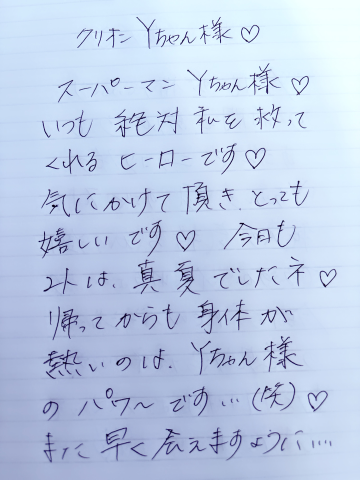 クリオネ Yちゃん様♡
スーパーマン Yちゃん様♡
いつも 絶対 私を 救って
くれる ヒーローです♡
気にかけて 頂き、とっても
嬉しいです♡ 今日も
2人は、真夏でしたネ♡
帰ってからも 身体が
熱いのは、Yちゃん様
の パワ〜 です…(笑)♡
また 早く 会えますように…